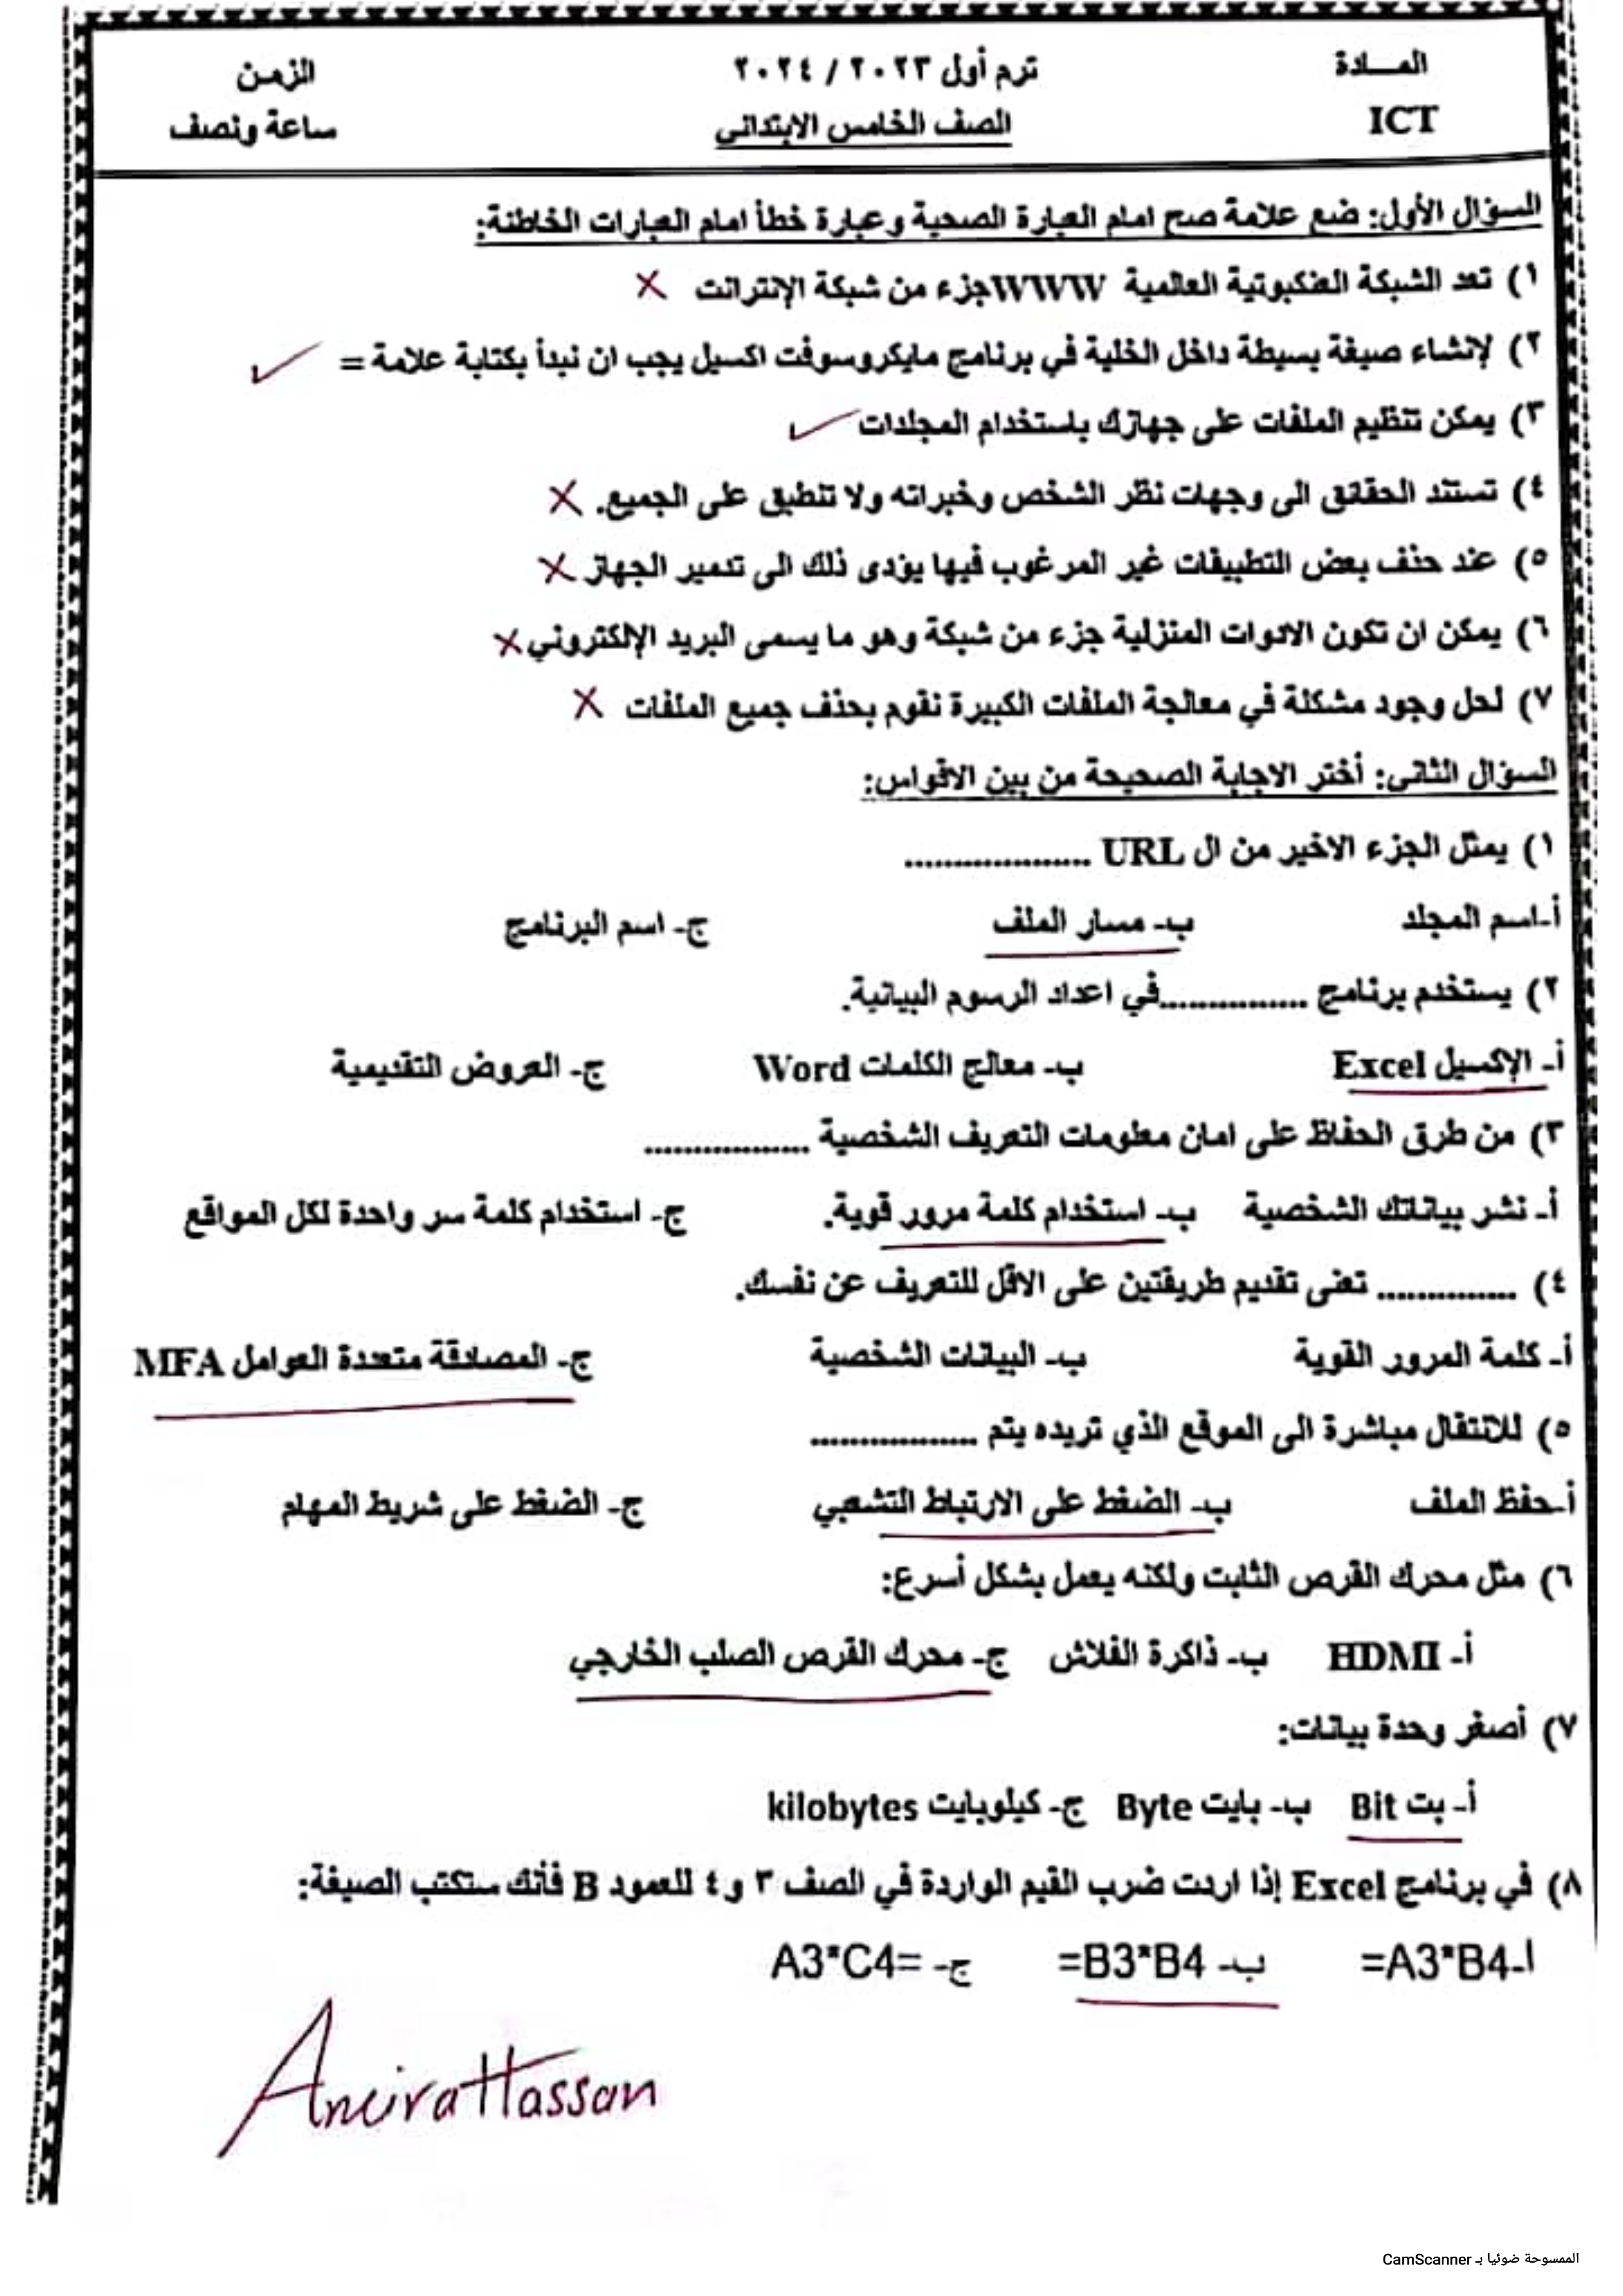 المـــادة ترم أول ٢٠٢٣ / ٢٠٢٤ الزمن
ICT الصف الخامس الابتدائي ساعة ونصف
السؤال الأول: ضع علامة صح امام العبارة الصحية وعبارة خطأ امام العبارات الخاطئة:
١) تعد الشبكة العنكبوتية العالمية WWWجزء من شبكة الإنترانت ×
٢) لإنشاء صيغة بسيطة داخل الخلية في برنامج مايكروسوفت اكسيل يجب ان نبدأ بكتابة علامة = ✓
٣) يمكن تنظيم الملفات على جهازك باستخدام المجلدات ✓
٤) تستند الحقائق الى وجهات نظر الشخص وخبراته ولا تنطبق على الجميع. ×
٥) عند حذف بعض التطبيقات غير المرغوب فيها يؤدى ذلك الى تدمير الجهاز ×
٦) يمكن ان تكون الادوات المنزلية جزء من شبكة وهو ما يسمى البريد الإلكتروني ×
٧) لحل وجود مشكلة في معالجة الملفات الكبيرة نقوم بحذف جميع الملفات ×
السؤال الثانى: أختر الاجابة الصحيحة من بين الاقواس:
١) يمثل الجزء الاخير من ال URL ..................
أ-اسم المجلد ب- مسار الملف ج- اسم البرنامج
٢) يستخدم برنامج ...............في اعداد الرسوم البيانية.
أ- الإكسيل Excel ب- معالج الكلمات Word ج- العروض التقديمية
٣) من طرق الحفاظ على امان معلومات التعريف الشخصية ................
أ- نشر بياناتك الشخصية ب- استخدام كلمة مرور قوية. ج- استخدام كلمة سر واحدة لكل المواقع
٤) .............. تعنى تقديم طريقتين على الاقل للتعريف عن نفسك.
أ- كلمة المرور القوية ب- البيانات الشخصية ج- المصادقة متعددة العوامل MFA
٥) للانتقال مباشرة الى الموقع الذي تريده يتم ................
أ-حفظ الملف ب- الضغط على الارتباط التشعبي ج- الضغط على شريط المهام
٦) مثل محرك القرص الثابت ولكنه يعمل بشكل أسرع:
أ- HDMI ب- ذاكرة الفلاش ج- محرك القرص الصلب الخارجي
٧) أصغر وحدة بيانات:
أ- بت Bit ب- بايت Byte ج- كيلوبايت kilobytes
٨) في برنامج Excel إذا اردت ضرب القيم الواردة في الصف ٣ و٤ للعمود B فأنك ستكتب الصيغة:
أ-A3*B4= ب- B3*B4= ج- =A3*C4
Amira Hassan
الممسوحة ضوئيا بـ CamScanner